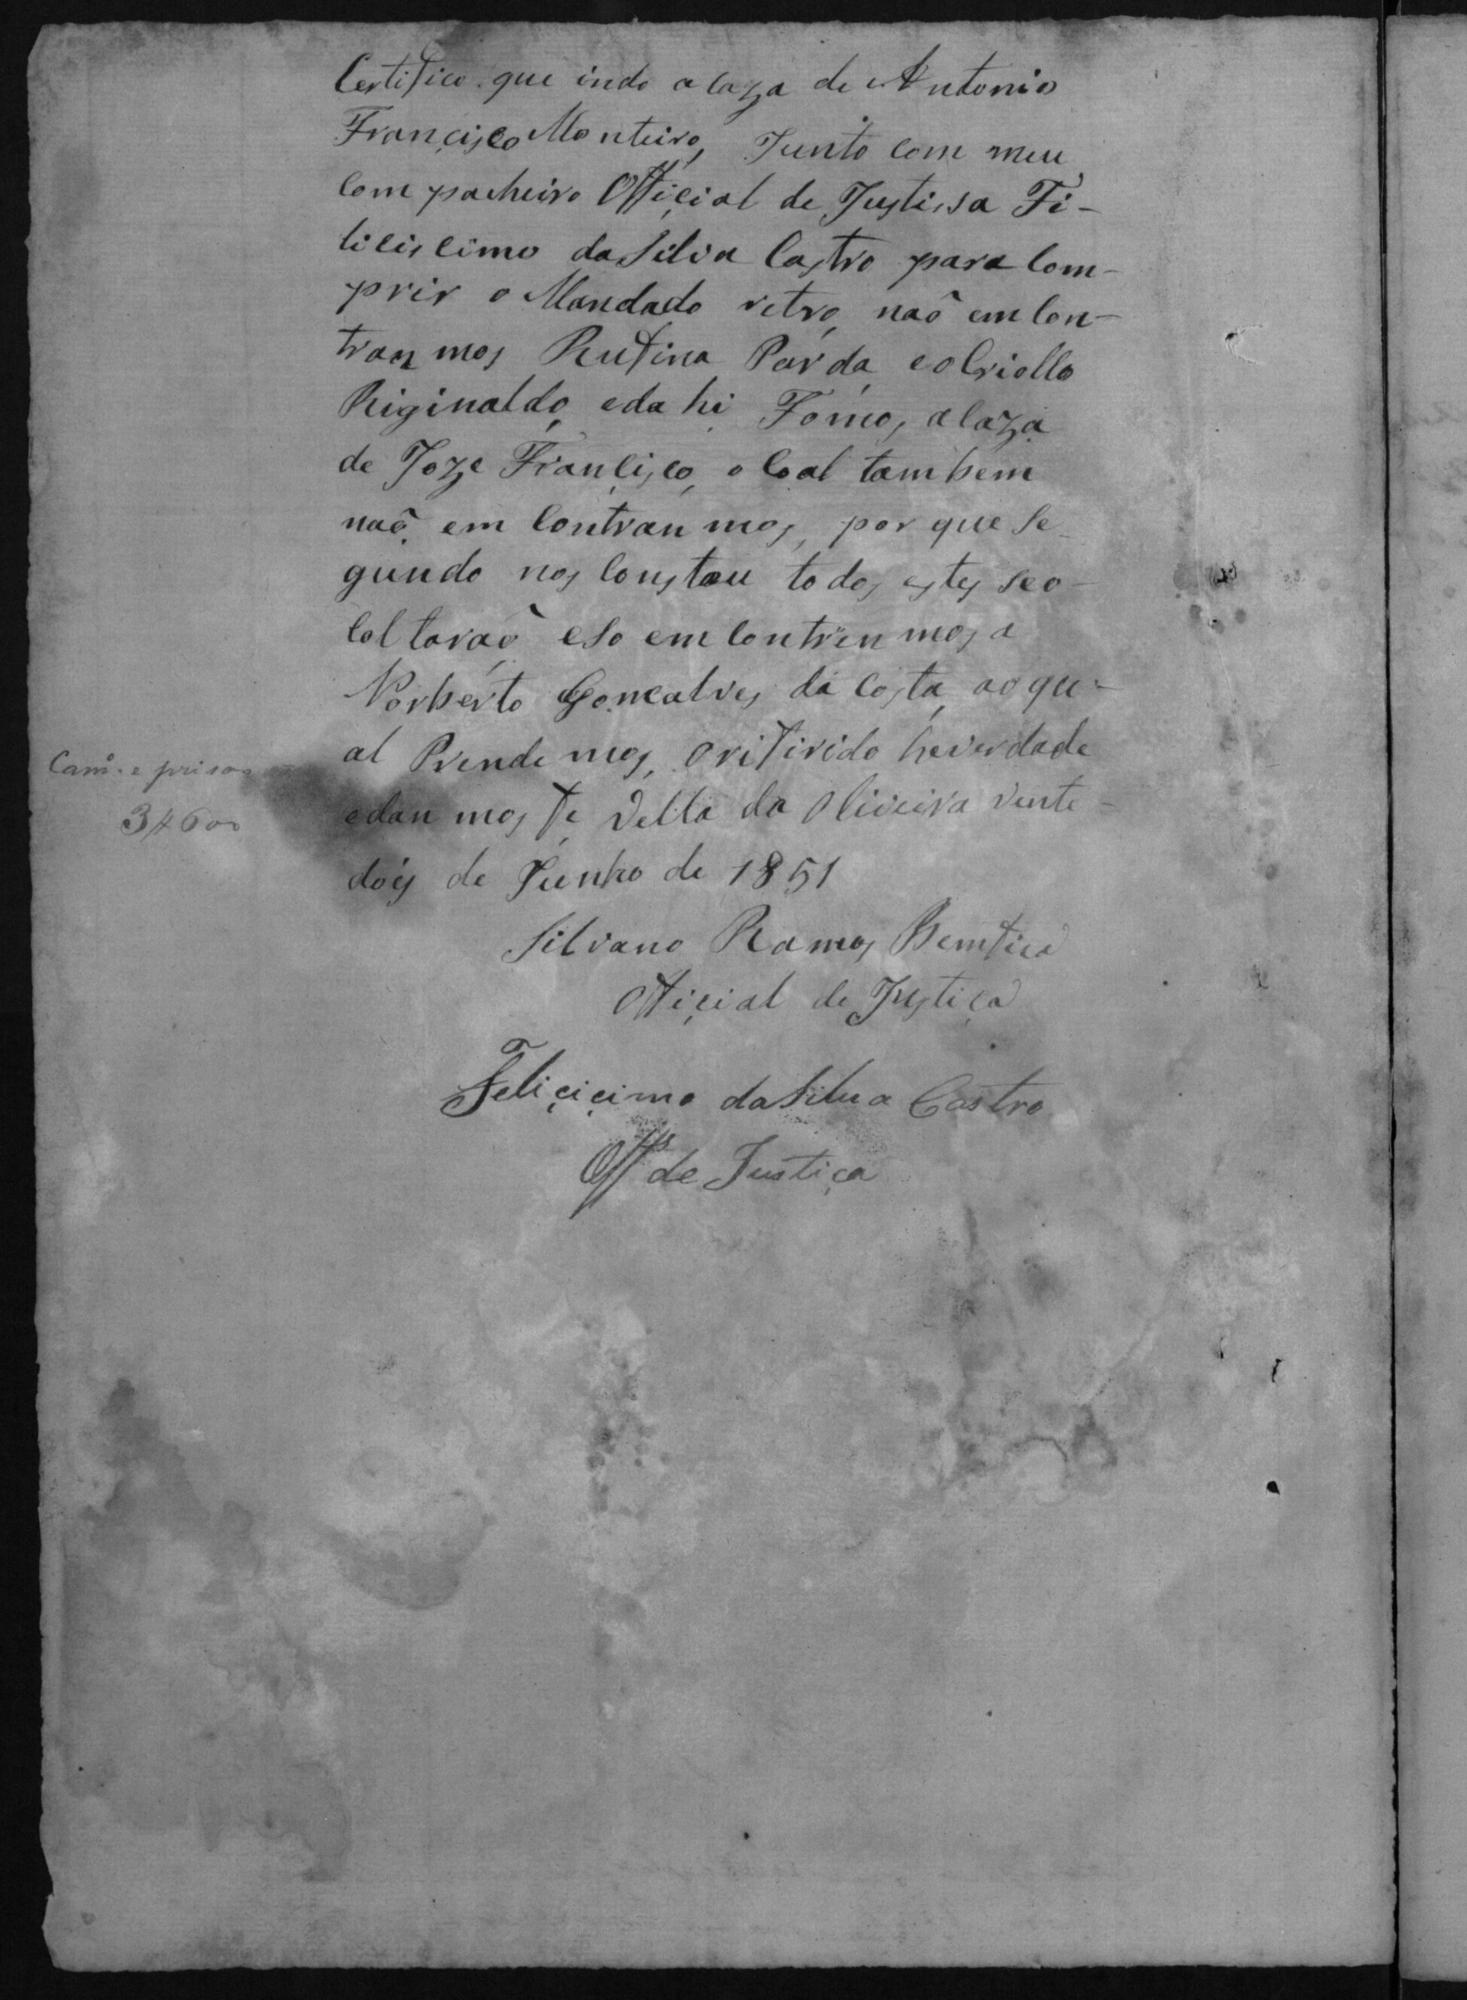 Certifico que indo a caza de Antonio
Francisco Monteiro, Junto com meu
com pacheiro Official de Justissa Fi-
licissimo da Silva Castro para Com-
prir o Mandado retro, naõ em Con-
tran mos Rufina Parda, e o Criollo
Riginaldo, e da hi Fomos, a Caza
de Joze Francisco, o Coal tambem
naõ em Contran mos, por que Se-
gundo nos Constou todos estes se o-
Coltaraõ e So em Contren mos a
Norberto Goncalves da Costa, ao qu-
al Prende mos, O rifirido he verdade
e dan mos Fe Villa da Oliveira vinte-
dois de Junho de 1851
Silvano Ramos Bemfica
Official de Justiça
Feliçiçimo da Silva Castro
Offal de Justiça
Camo. e prisaõ
3$600